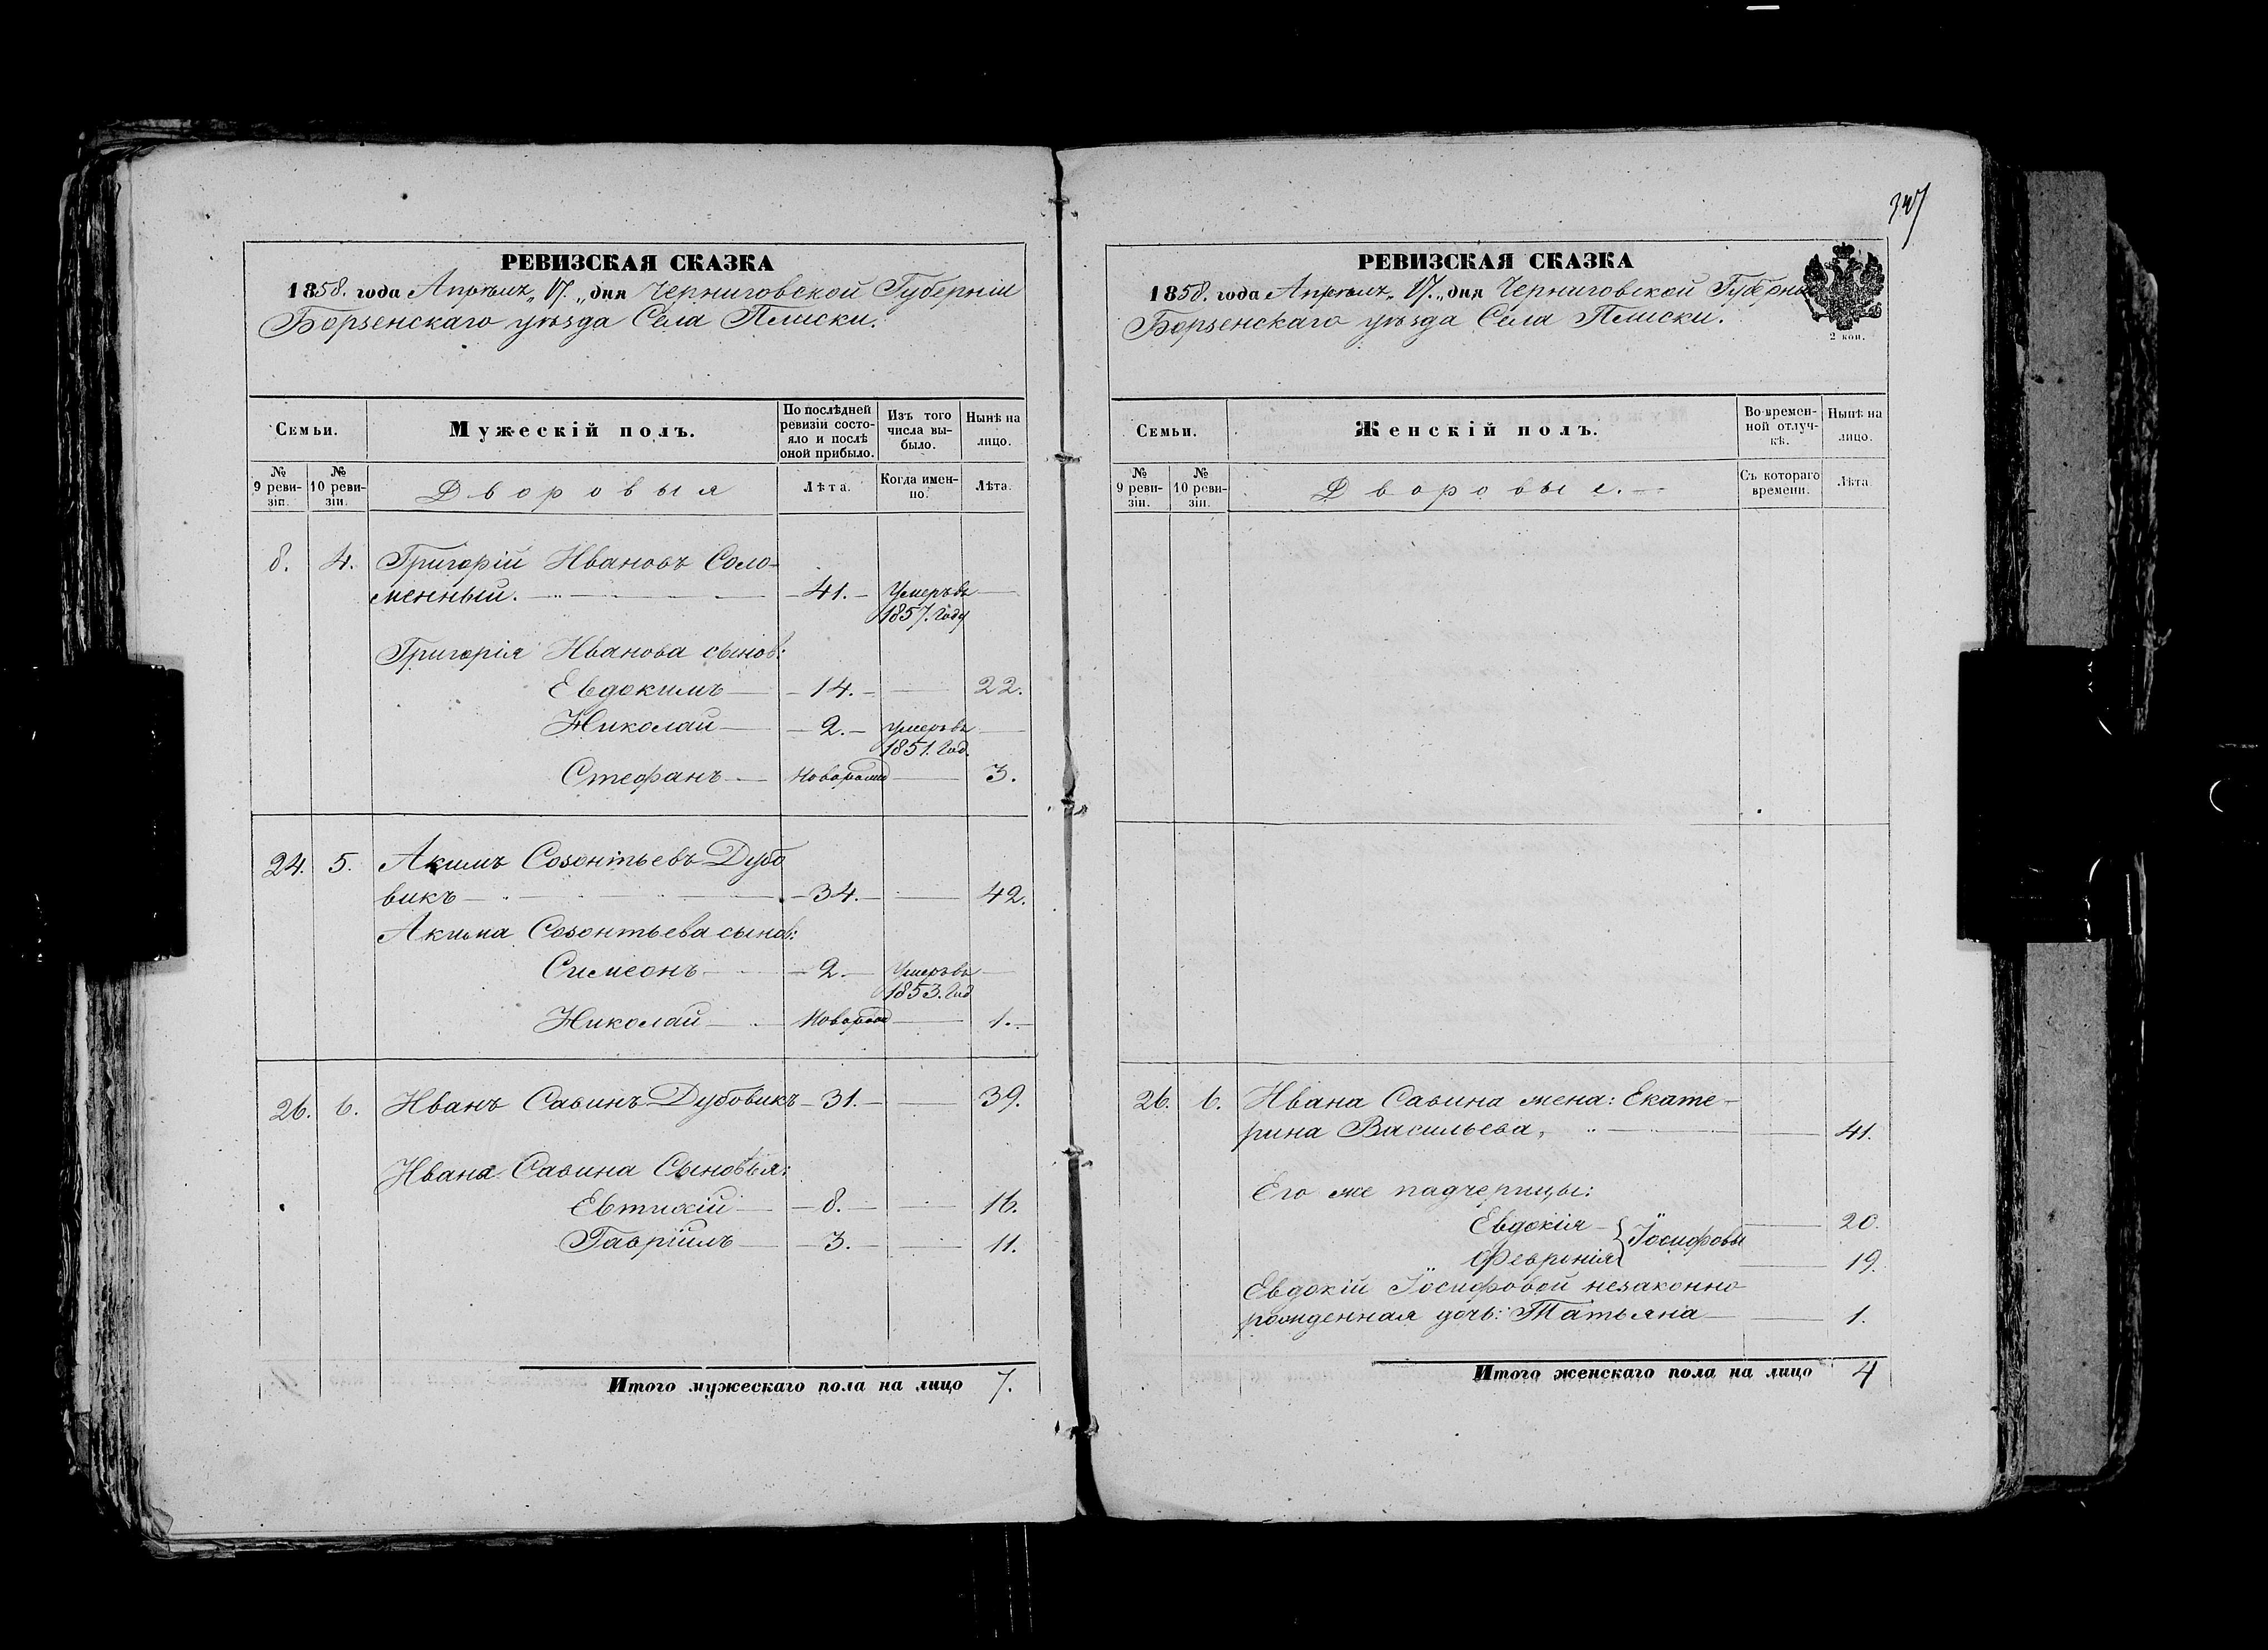 РЕВИЗСКАЯ СКАЗКА
1858. года Апрѣля „ 17. „ дня Черниговской Губерніи
Борзенскаго уѣзда Села Плиски.
Семьи.
Мужескій полъ.
По послѣдней ревизіи состояло и послѣ оной прибыло.
Изъ того числа выбыло.
Нынѣ на лицо.
№ 9 ревизіи.
№ 10 ревизіи.
Дворовыя
Лѣта.
Когда именно.
Лѣта.
8. 4. Григорій Ивановъ Соло-
менный. 41. Умеръ въ
1857. Году
Григорія Иванова сынов:
Евдокимъ 14. 22.
Николай 2. Умеръ въ
1851. Год.
Стефанъ 3.
24. 5. Акимъ Созонтьевъ Дубо
викъ 34. 42.
Акима Созонтьева сынов:
Симеонъ 2. Умеръ въ
1853. Год
Николай 1.
26. 6. Иванъ Савинъ Дубовикъ 31. 39.
Ивана Савина Сыновья:
Евтихій 8. 16.
Гавріилъ 3. 11.
Итого мужескаго пола на лицо 7.
РЕВИЗСКАЯ СКАЗКА
1858. года Апрѣля „ 17. „ дня Черниговской
Борзенскаго уѣзда Села Плиски.
2 коп.
Семьи.
Женскій полъ.
Во временной отлучкѣ.
Нынѣ на лицо.
№ 9 ревизіи.
№ 10 ревизіи.
Дворовые.
Съ котораго времени.
Лѣта.
26. 6. Ивана Савина жена: Екате-
рина Васильева, 41.
Его же падчерицы:
Евдокія 20.
Іосифовы
Февронія 19.
Евдокіи Іосифовой незаконно
рожденная дочь: Татьяна 1.
Итого женскаго пола на лицо 4